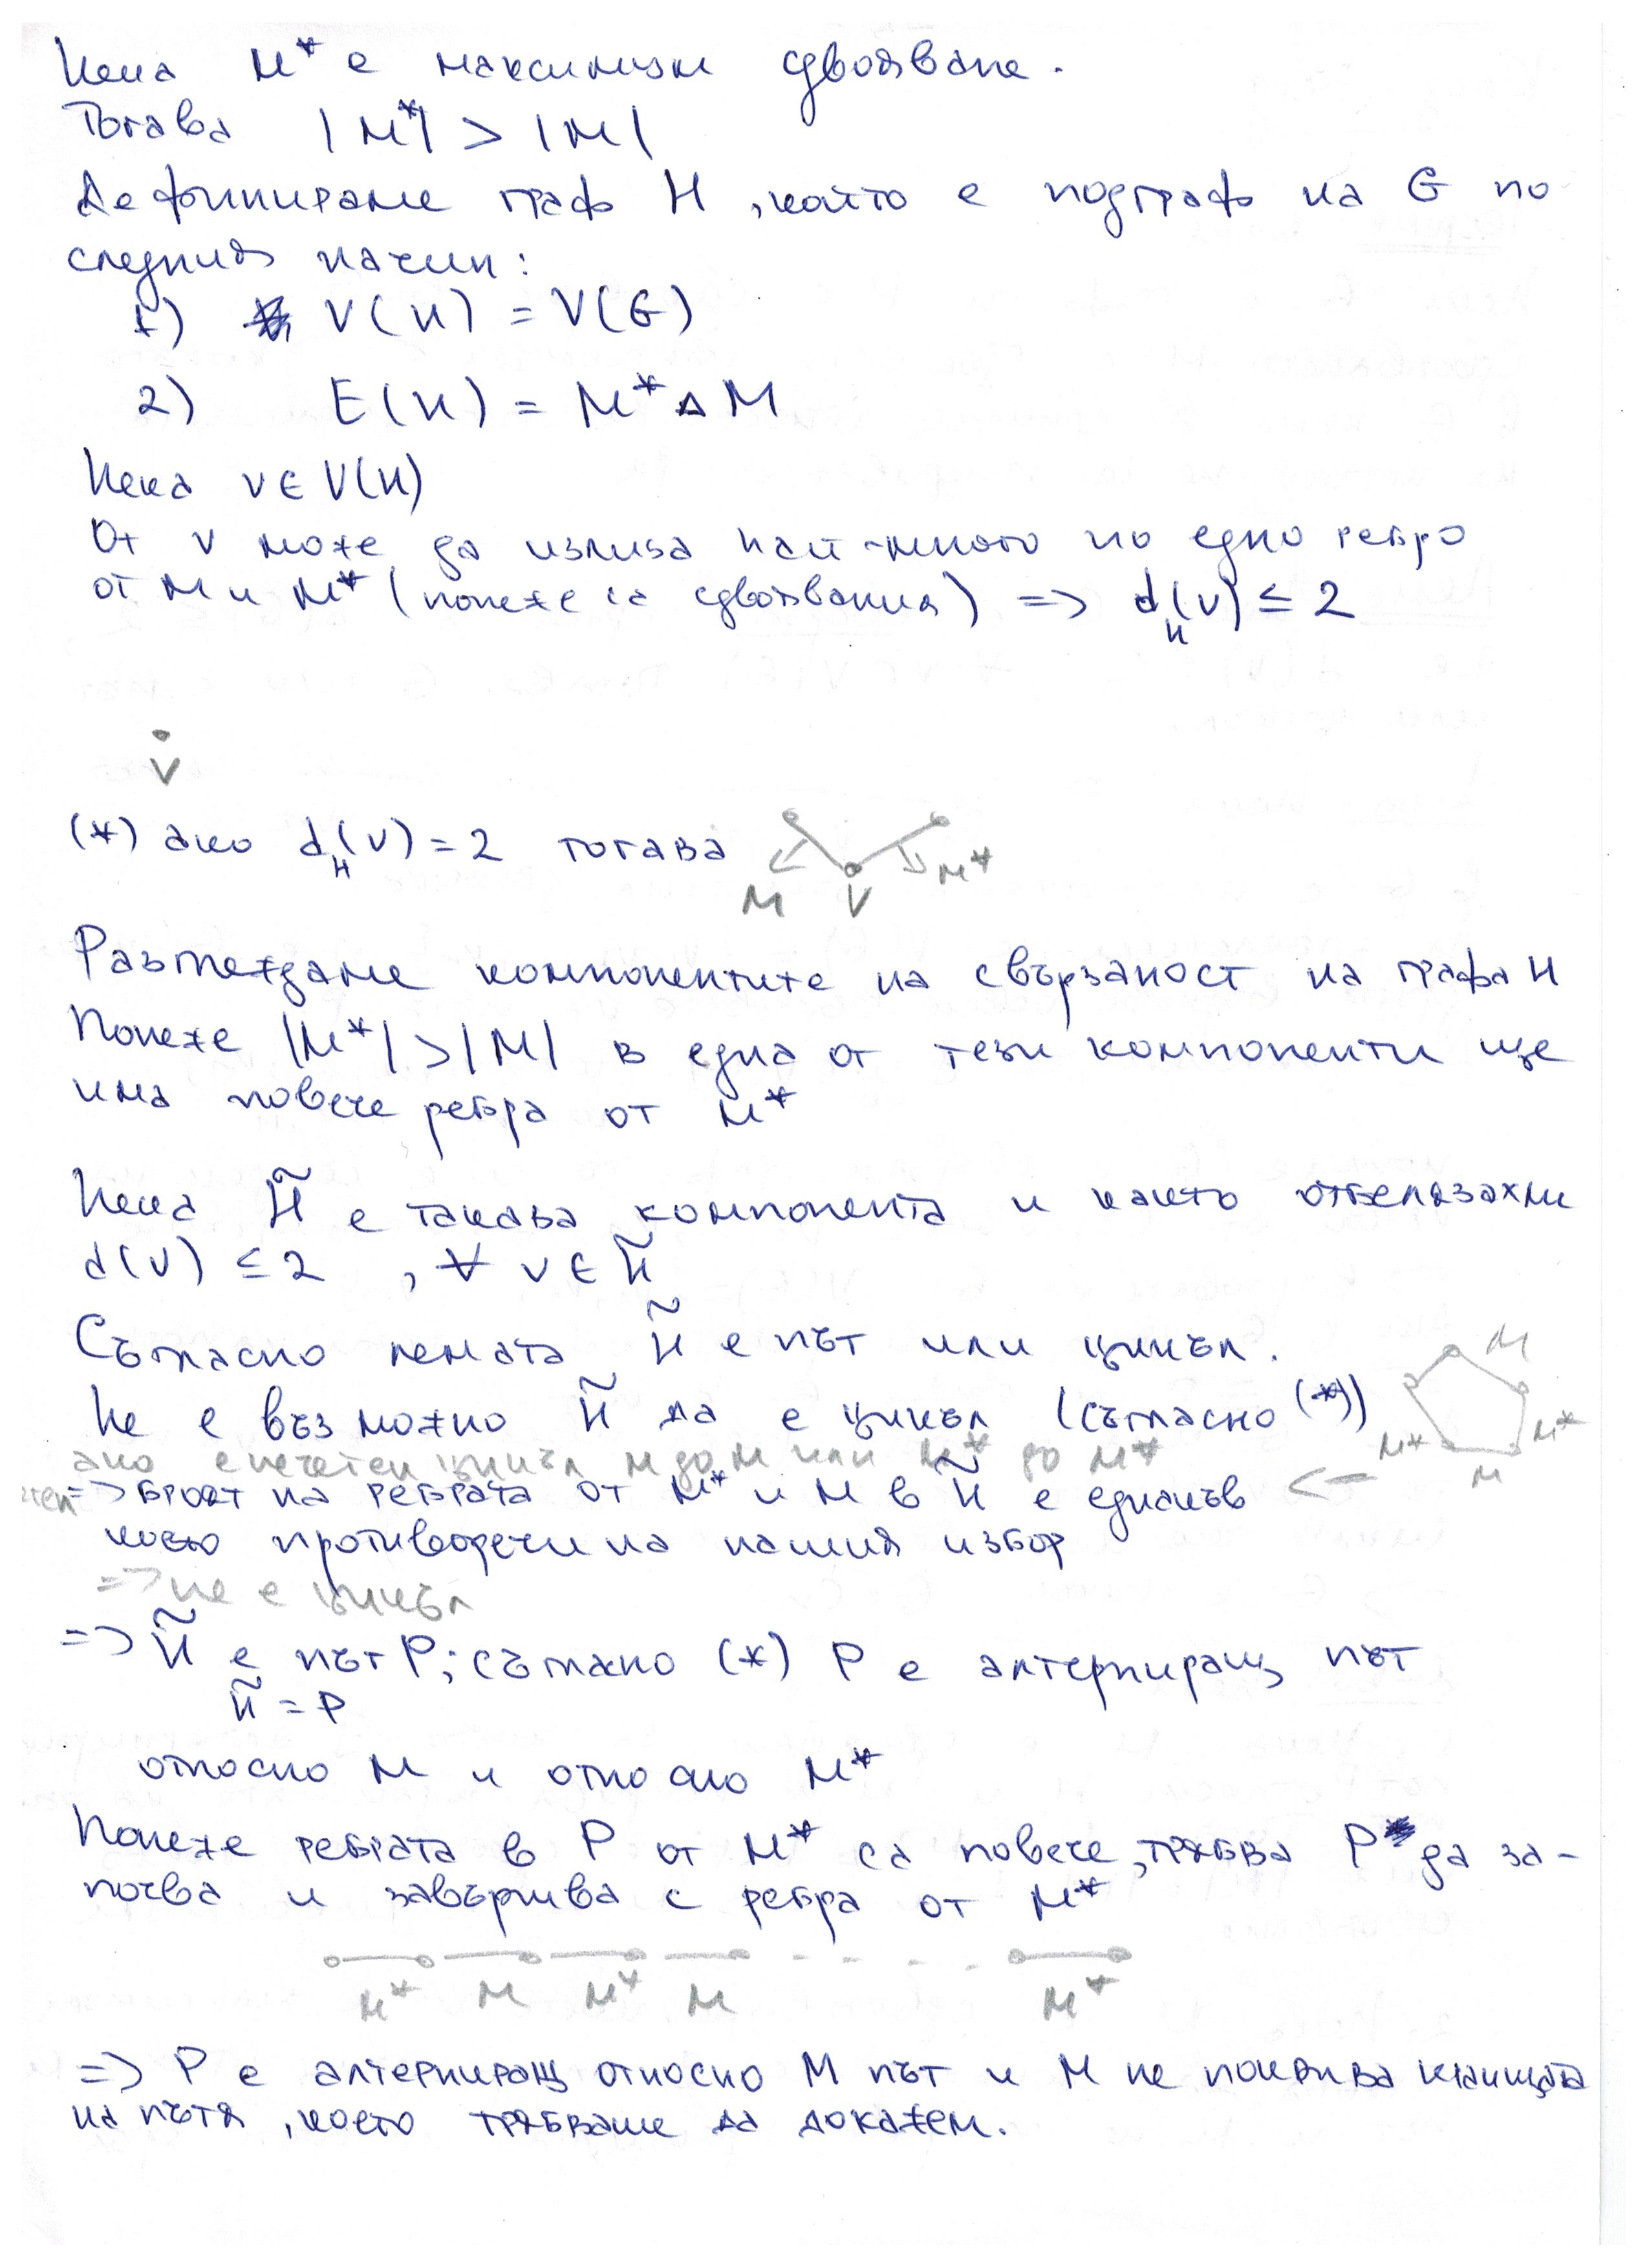 Нека M* е максимално сдвояване.
Тогава |M*| > |M|
Дефинираме граф H, който е подграф на G по
следния начин:
1) V(H) = V(G)
2) E(H) = M* Δ M
Нека v ∈ V(H)
От v може да излиза най-много по едно ребро
от M и M* (понеже са сдвоявания) => d_H(v) ≤ 2
v
(*) ако d_H(v) = 2 тогава
M v M*
Разглеждаме компонентите на свързаност на графа H
Понеже |M*| > |M| в една от тези компоненти ще
има повече ребра от M*
Нека H̃ е такава компонента и както отбелязахме
d(v) ≤ 2 , ∀ v ∈ H̃
Съгласно лемата H̃ е път или цикъл.
M
Не е възможно H̃ да е цикъл (съгласно (*))
M* M M*
ако е нечетен цикъл M до M или M* до M*
=> броят на ребрата от M* и M в H̃ е еднакъв <-
което противоречи на нашия избор
=> не е цикъл
=> H̃ е път P; съгласно (*) P е алтерниращ път
H̃ = P
относно M и относно M*
Понеже ребрата в P от M* са повече, трябва P да за-
почва и завършва с ребра от M*
M* M M* M M*
=> P е алтерниращ относно M път и M не покрива краищата
на пътя, което трябваше да докажем.